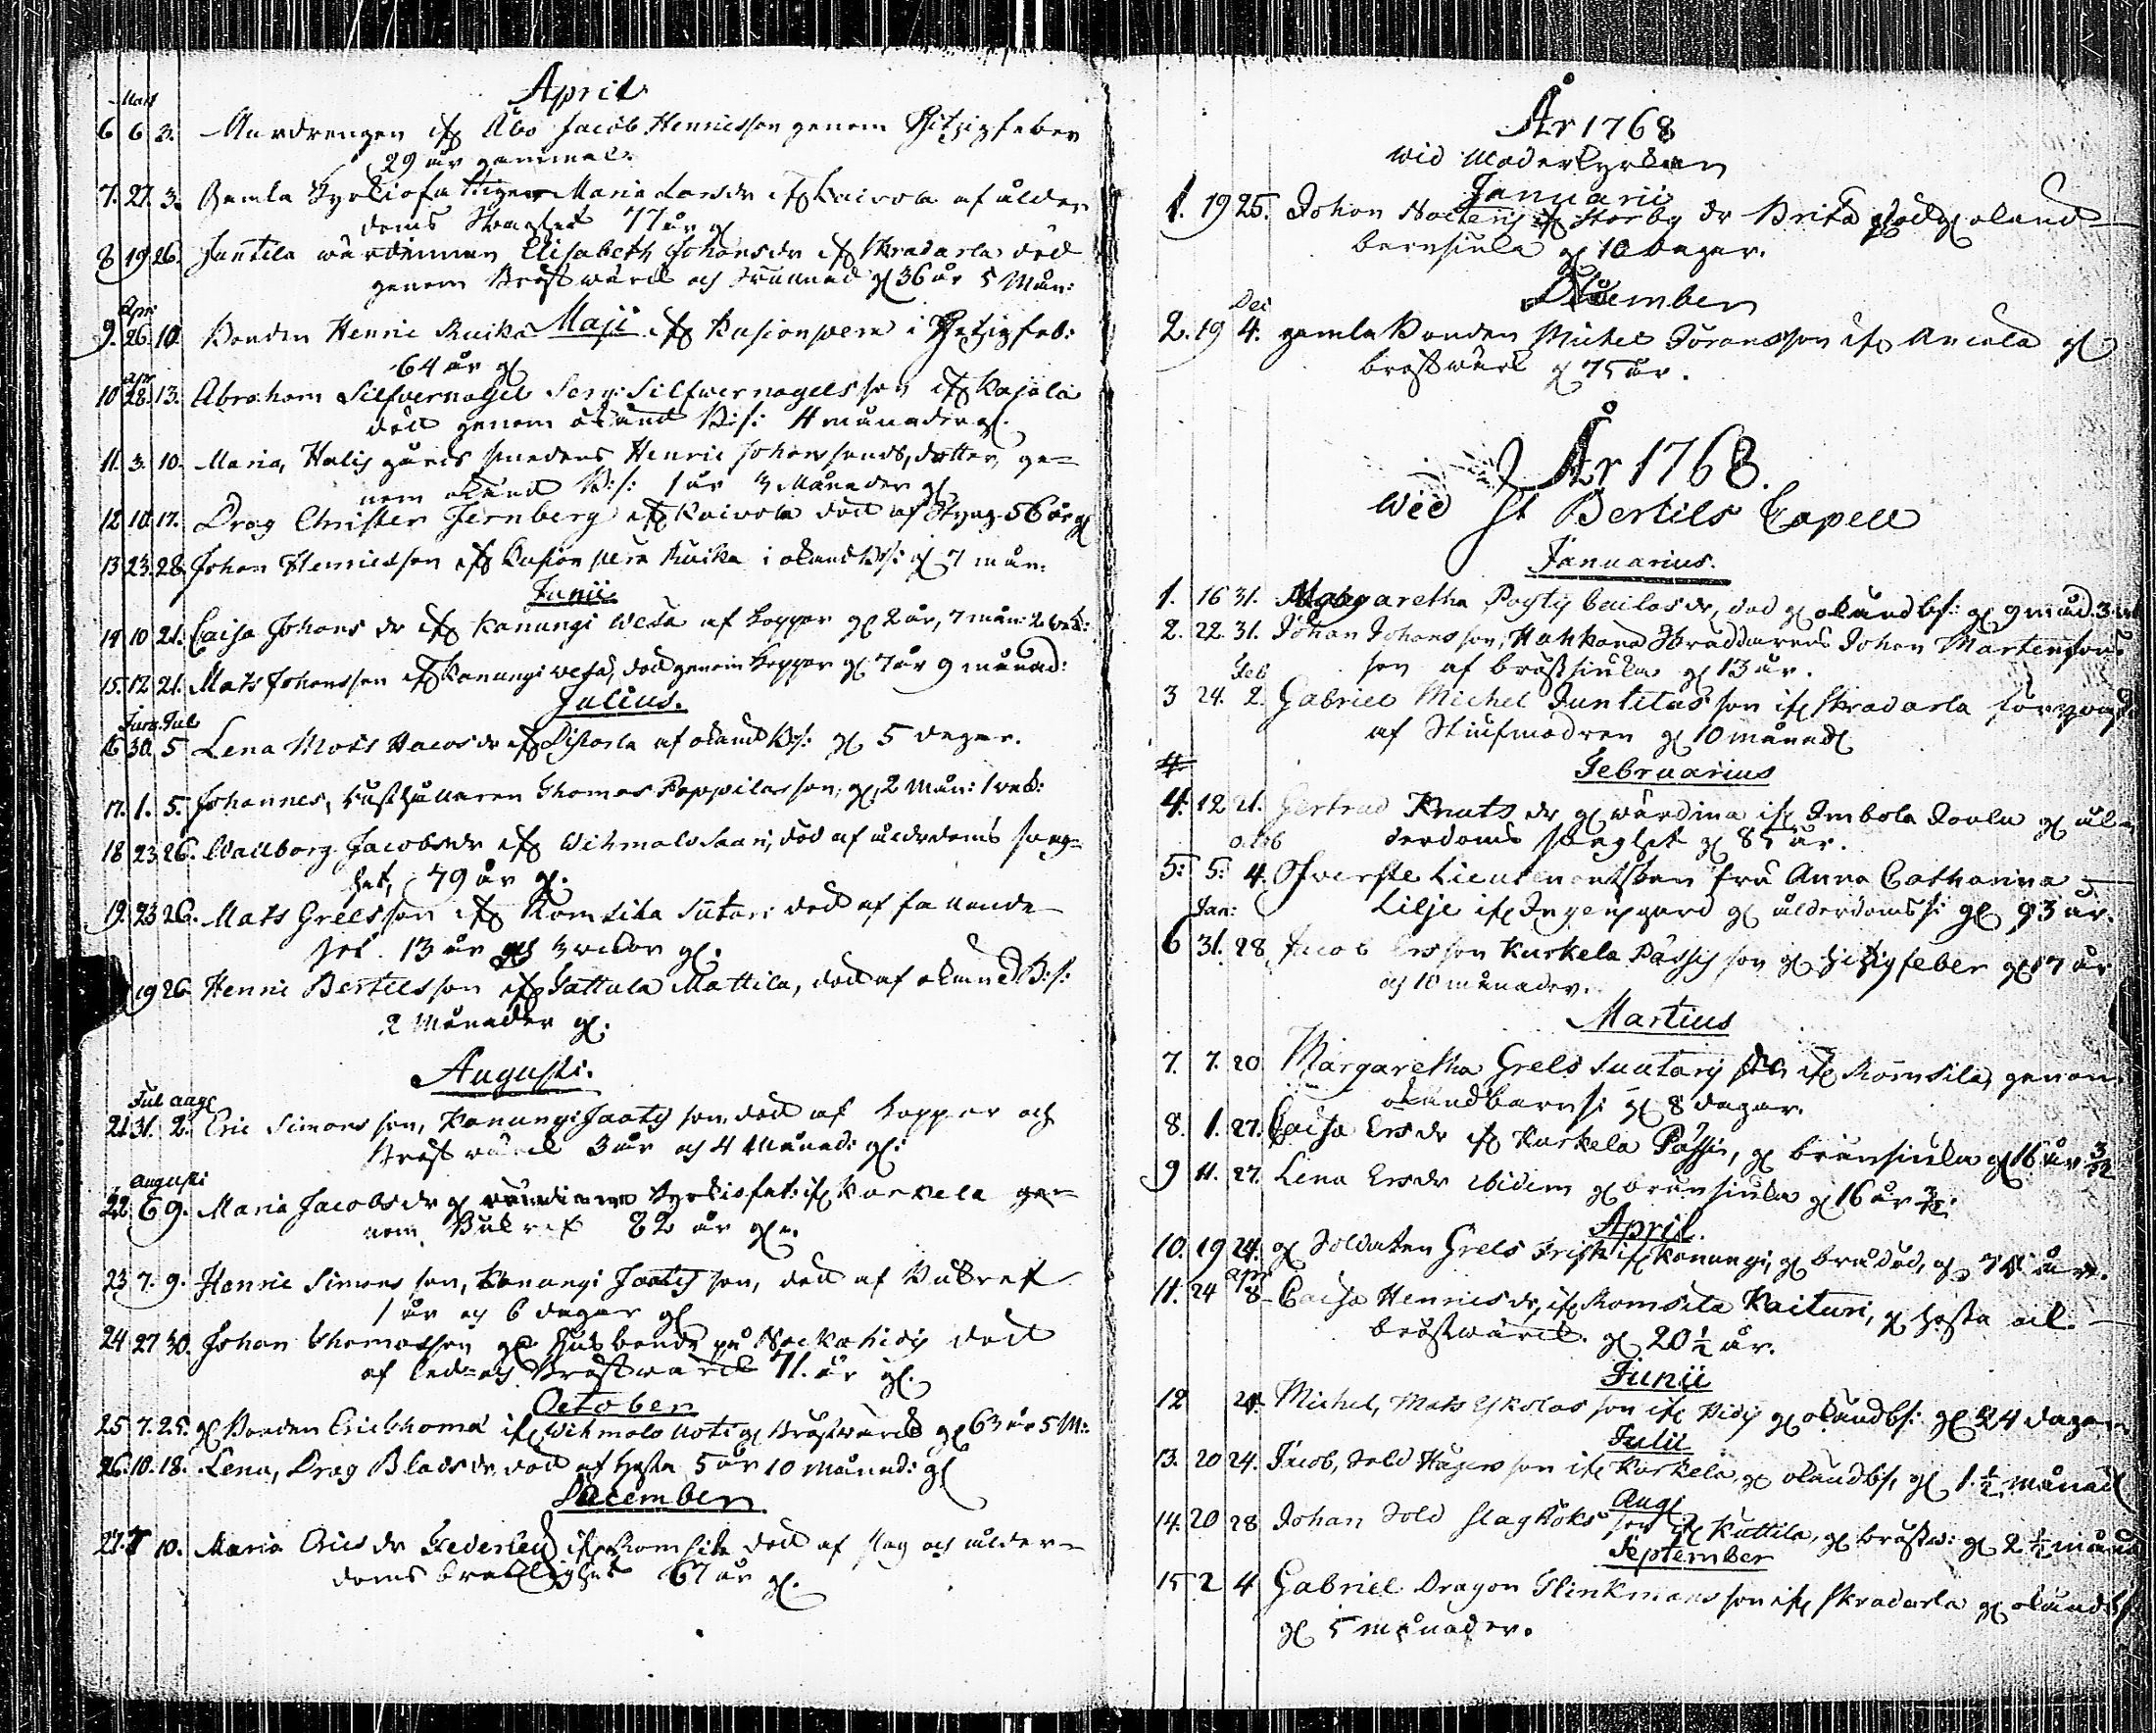 April
Mart
6 6 3. Murdrengen ifr Åbo Jacob Henricsson genom Hitzigfeber
29 år gammal.
7. 27. 3. Gamla Maria Larsdr ifr Kaivola af ålder
doms 77 år gl
8 19 26. Juntila wärdinnan Elisabeth Johansdr ifr Skradarla död
genom Bröst wärck och gl 36 år 5 Mån:
Maji
Apr:
9. 26. 10 Bonden Henric Ruika ifr Kusionpere i Hetzigfeb:
64 år gl
apr
10 28. 13. Abraham Silfvernagel Serg: Silfwernagels son ifr Kajala
död genom okänd B:s: 4 månader gl.
11. 3. 10. Maria, Halis gårds smedens Henric Johanssons, dotter, ge=
nom okänd B:s: 1 år 3 Månader gl
12 10 17. Drag Christer Jernberg ifr Kaivola död af Styng 56 år gl
13 23. 28. Johan Henricsson ifr Kusionpere Ruika i okänd B:s: gl 7 mån.
Junii
14 10 21. Caisa Johans dr ifr Kanungi Wesa af koppor gl 2 år, 7 mån: 2 wek:
15. 12 21. Mats Johansson ifr Kanungi wesa, död genom koppor gl 7 år 9 månad:
Julius.
Juni Jul
16 30. 5 Lena Mats dr ifr af okänd B:s: gl 5 dagar.
17. 1. 5. Johannes, Rusthållaren Thomas Peppilas son, gl, 2 Mån: 1 wek:
18 23 26. Wallborg Jacobsdr ifr Wihmalo Saari, död af ålderdoms swag=
het, 79 år gl.
19. 23 26. Mats Grelsson ifr Romsila Sutari död af fallande
sot. 13 år och 3 wekor gl.
19 26 Henric Bertelsson ifr Tattula Mattila, död af okänd B:s:
2 Månader gl.
Augusti.
Jul aug:
21 31. 2. Eric Simons son, Kanungi Jaatis son, död af koppor och
Bröst wärck 3 år och 4 Månad: gl:
Augusti
22. 6 9. Maria Jacobsdr gl ifr Karkela ge=
nom Bukref 82 år gl.
23 7. 9. Henric Simons son, Kanungi Jaatis son, död af Bukref
1 år och 6 dagar gl
24 27 30. Johan Thomasson gl Husbonde på död
af led= och Bröstwärck 71. år gl.
October
25 7. 25. gl Bonden Eric Thomas ifr Wihmalo Uoti gl Bröstwärck gl 63 år 5 M:
26. 10. 18. Lena, Drag Blads dr, död af hosta 5 år 10 Månad: gl
December
27. 7 10. Maria Erics dr Federley ifr Romsila död af slag och ålder=
doms bräcklighet 67 år gl.
År 1768
Wid Moderkyrkan
Januarii
1. 19 25. Johan ifr Storby dr Brita okänd
barnsiuka gl 10 dagar.
December
Dec
2. 19 4. gamla Bonden Michel Göransson ifr gl
bröstwärk gl 75 år.
År 1768.
Wid St Bertils Capell
Januarius.
1. 16 31. Margaretha Poytis Cailas dr, död gl okänd bs: gl 9 månad. 3
2. 22. 31. Johan Johans son, Hahkana Skräddarens Johan Mårtensons
son af bröstsiuka gl 13 år.
Feb
3 24. 2. Gabriel Michel Juntilas son ifr Skradarla
af Stiufmodren gl 10 månad
4.
Februarius
4. 12 21. Gertrud Knuts dr, gl wärdina ifr Imbola gl ål=
derdoms swaghet gl 85 år.
5. 5. 4. Öfwerste Lieutenantskan fru Anna Catharina
Lilje ifr gl ålderdoms si gl 93 år.
Jan:
6 31. 28 Jacob Ersson Kurkela Passis son gl hitzigfeber gl 17 år
och 10 månader.
Martius
7. 7. 20 Margaretha Grels Suutaris dr ifr Romsila, genom
okänd barns: gl 8 dagar.
8. 1. 27. Caisa Ersdr ifr Kurkela Passi, gl brånsiuka gl 16 år 3/12
9 11. 27. Lena Ersdr ibidem gl brånsiuka gl 16 år 3/12:
April.
10. 19 24. gl Soldaten Grels Frisk ifr Kanungi, gl brådöd, gl år.
apr
11. 24 8 Caisa Henrics dr, ifr Romsila Kaituri, gl hosta och
bröstwärck. gl 20 1/2 år.
Junii
12 24. Michel, Mats son ifr gl okänd bs: gl 24 dagar
Julii
13. 20 24. Jacob, Sold Hagers son ifr Kurkela, gl okänd bs, gl 1. 1/2 månad
Aug:
14. 20 28 Johan Sold Slagkoks son ifr Kuttila, gl bröstw: gl 2 1/2 månad
September
15 2 4 Gabriel Dragon Flinkmans son ifr Skradarla gl okänd bs
gl 5 månader.